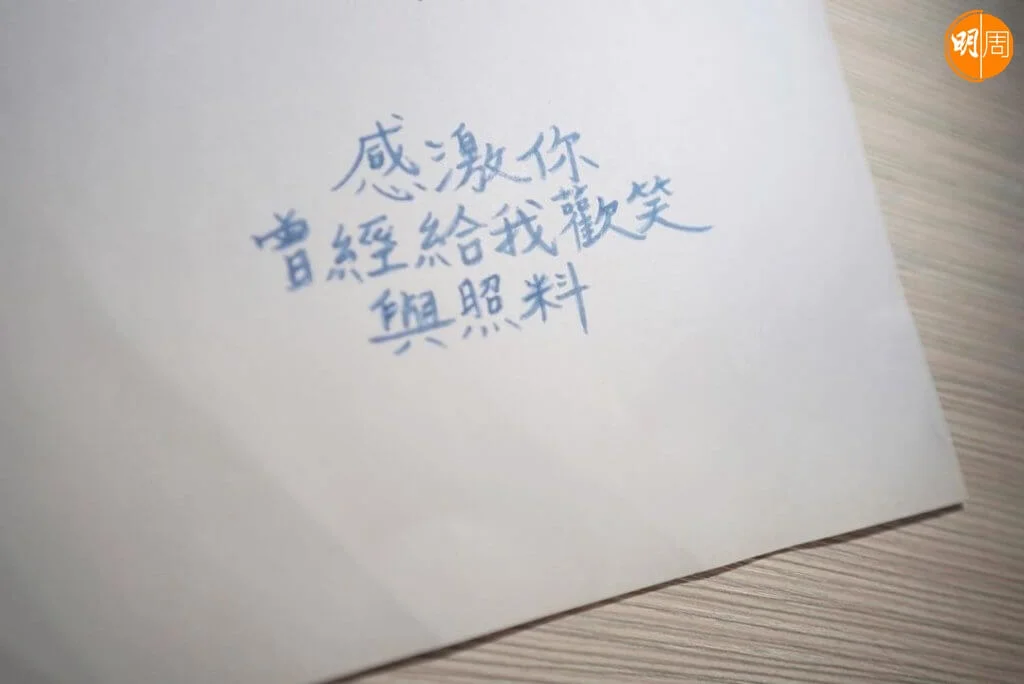 明周
感激你
曾經給我歡笑
與照料